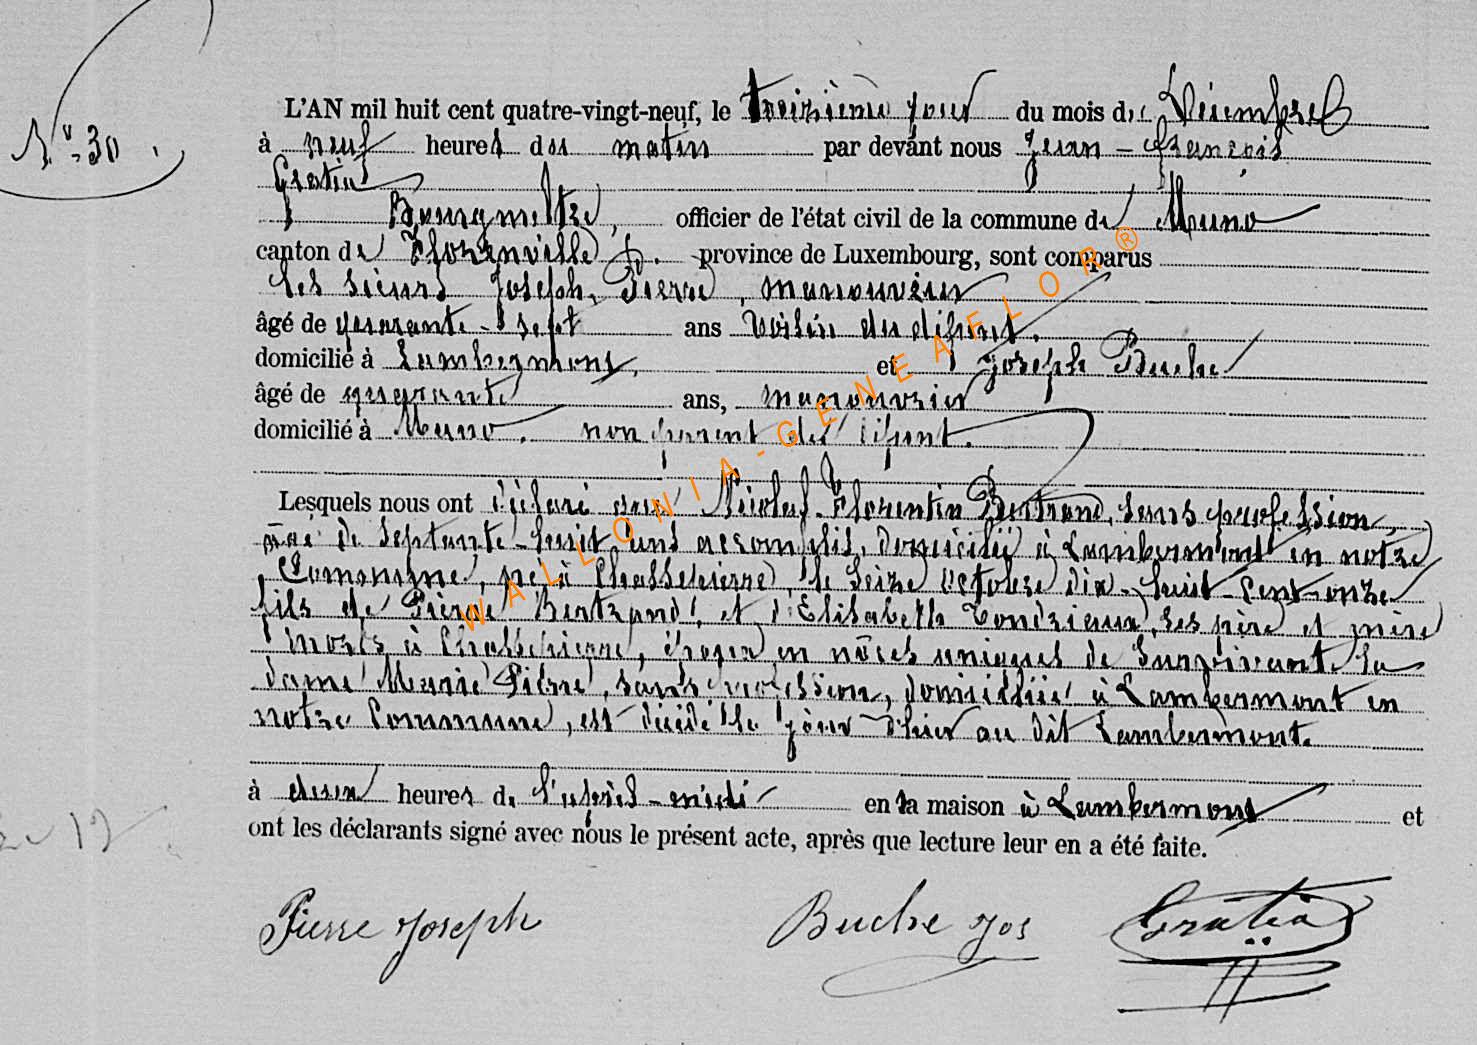 N° 30.
L'AN mil huit cent quatre-vingt-neuf, le treizième jour du mois de Décembre
à neuf heures du matin par devant nous Jean-François
Gratia
Bourgmestre, officier de l'état civil de la commune de Muno
canton de Florenville, province de Luxembourg, sont comparus
les sieurs Joseph Pierre, manouvrier
âgé de quarante-sept ans voisin du défunt.
domicilié à Lambermont, et Joseph Buche
âgé de quarante ans, manouvrier
domicilié à Muno, non parent du défunt.
Lesquels nous ont déclaré que Nicolas Florentin Bertrand, sans profession,
âgé de septante-huit ans accomplis, domicilié à Lambermont en notre
Commune, né à Chassepierre, le seize octobre dix-huit-cent-onze
fils de Pierre Bertrand, et d'Elisabeth Tondrieaux, ses père et mère
morts à Chassepierre, époux en nôces uniques de survivante la
dame Marie Pierre, sans profession, domiciliée à Lambermont en
notre Commune, est décédé le jour d'hier au dit Lambermont.
à deux heures de l'après-midi en sa maison à Lambermont et
ont les déclarants signé avec nous le présent acte, après que lecture leur en a été faite.
Pierre Joseph Buche Jos Gratia
WALLONIA-GENEAFLOR®